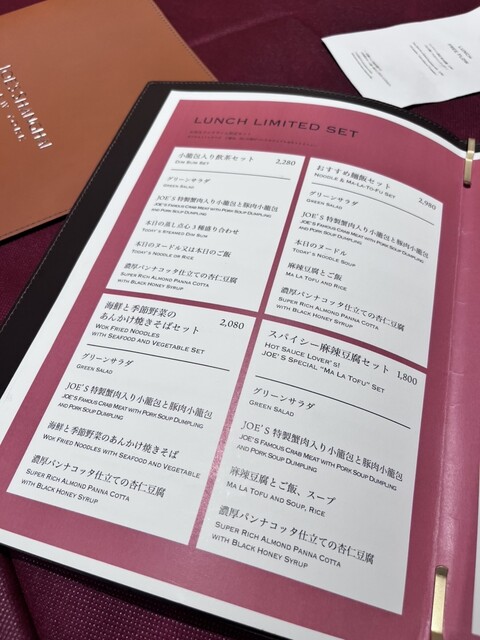 LUNCH LIMITED SET
小籠包入り飲茶セット 2,280
DIM SUM SET
グリーンサラダ
GREEN SALAD
JOE'S 特製蟹肉入り小籠包と豚肉小籠包
JOE'S FAMOUS CRAB MEAT WITH PORK SOUP DUMPLING
AND PORK SOUP DUMPLING
本日の蒸し点心3種盛り合わせ
TODAY'S STEAMED DIM SUM
本日のヌードル又は本日のご飯
TODAY'S NOODLE OR RICE
濃厚パンナコッタ仕立ての杏仁豆腐
SUPER RICH ALMOND PANNA COTTA
WITH BLACK HONEY SYRUP
おすすめ麺飯セット 2,980
NOODLE & MA-LA-TO-FU SET
グリーンサラダ
GREEN SALAD
JOE'S 特製蟹肉入り小籠包と豚肉小籠包
JOE'S FAMOUS CRAB MEAT WITH PORK SOUP DUMPLING
AND PORK SOUP DUMPLING
本日のヌードル
TODAY'S NOODLE SOUP
麻辣豆腐とご飯
MA LA TOFU AND RICE
濃厚パンナコッタ仕立ての杏仁豆腐
SUPER RICH ALMOND PANNA COTTA
WITH BLACK HONEY SYRUP
海鮮と季節野菜の
あんかけ焼きそばセット 2,080
WOK FRIED NOODLES
WITH SEAFOOD AND VEGETABLE SET
グリーンサラダ
GREEN SALAD
JOE'S 特製蟹肉入り小籠包と豚肉小籠包
JOE'S FAMOUS CRAB MEAT WITH PORK SOUP DUMPLING
AND PORK SOUP DUMPLING
海鮮と季節野菜のあんかけ焼きそば
WOK FRIED NOODLES WITH SEAFOOD AND VEGETABLE
濃厚パンナコッタ仕立ての杏仁豆腐
SUPER RICH ALMOND PANNA COTTA
WITH BLACK HONEY SYRUP
スパイシー麻辣豆腐セット 1,800
HOT SAUCE LOVER'S!
JOE'S SPECIAL "MA LA TOFU" SET
グリーンサラダ
GREEN SALAD
JOE'S 特製蟹肉入り小籠包と豚肉小籠包
JOE'S FAMOUS CRAB MEAT WITH PORK SOUP DUMPLING
AND PORK SOUP DUMPLING
麻辣豆腐とご飯、スープ
MA LA TOFU AND SOUP, RICE
濃厚パンナコッタ仕立ての杏仁豆腐
SUPER RICH ALMOND PANNA COTTA
WITH BLACK HONEY SYRUP